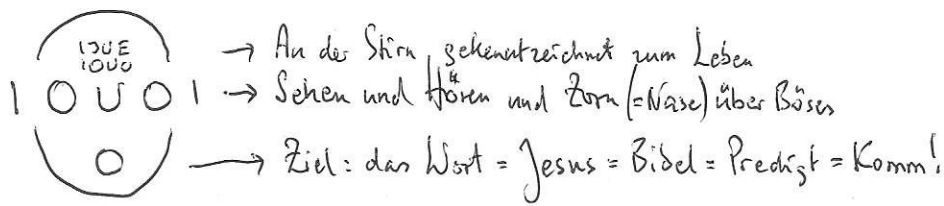 IJUE → An der Stirn gekennzeichnet zum Leben
IOUO
I O U O I → Sehen und Hören und Zorn (=Nase) über Böses
O → Ziel: das Wort = Jesus = Bibel = Predigt = Komm!